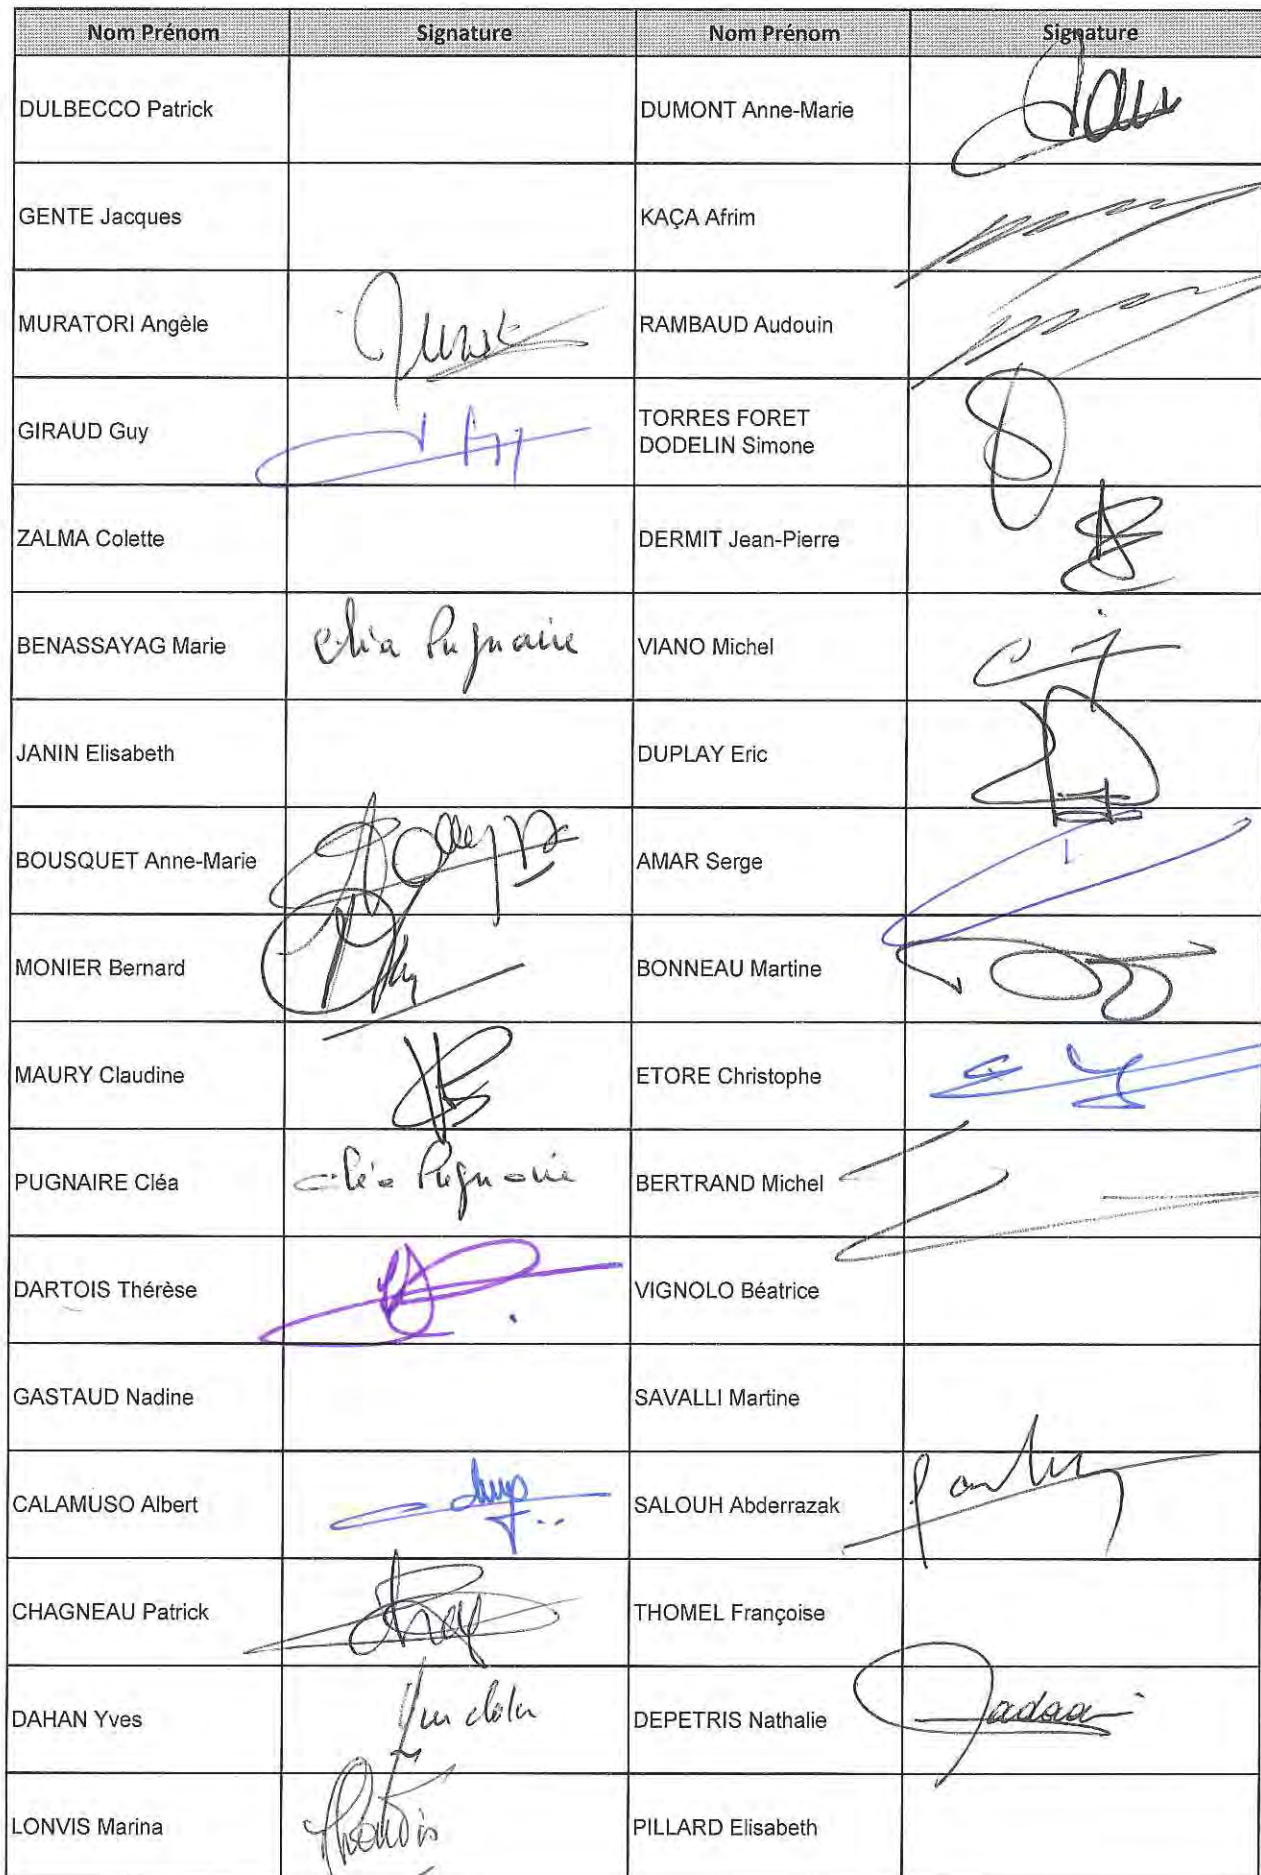 Nom Prénom Signature Nom Prénom Signature
DULBECCO Patrick DUMONT Anne-Marie
GENTE Jacques KAÇA Afrim
MURATORI Angèle RAMBAUD Audouin
GIRAUD Guy TORRES FORET
DODELIN Simone
ZALMA Colette DERMIT Jean-Pierre
BENASSAYAG Marie Cléa Pugnaire VIANO Michel
JANIN Elisabeth DUPLAY Eric
BOUSQUET Anne-Marie AMAR Serge
MONIER Bernard BONNEAU Martine
MAURY Claudine ETORE Christophe
PUGNAIRE Cléa Cléa Pugnaire BERTRAND Michel
DARTOIS Thérèse VIGNOLO Béatrice
GASTAUD Nadine SAVALLI Martine
CALAMUSO Albert SALOUH Abderrazak
CHAGNEAU Patrick THOMEL Françoise
DAHAN Yves DEPETRIS Nathalie
LONVIS Marina PILLARD Elisabeth